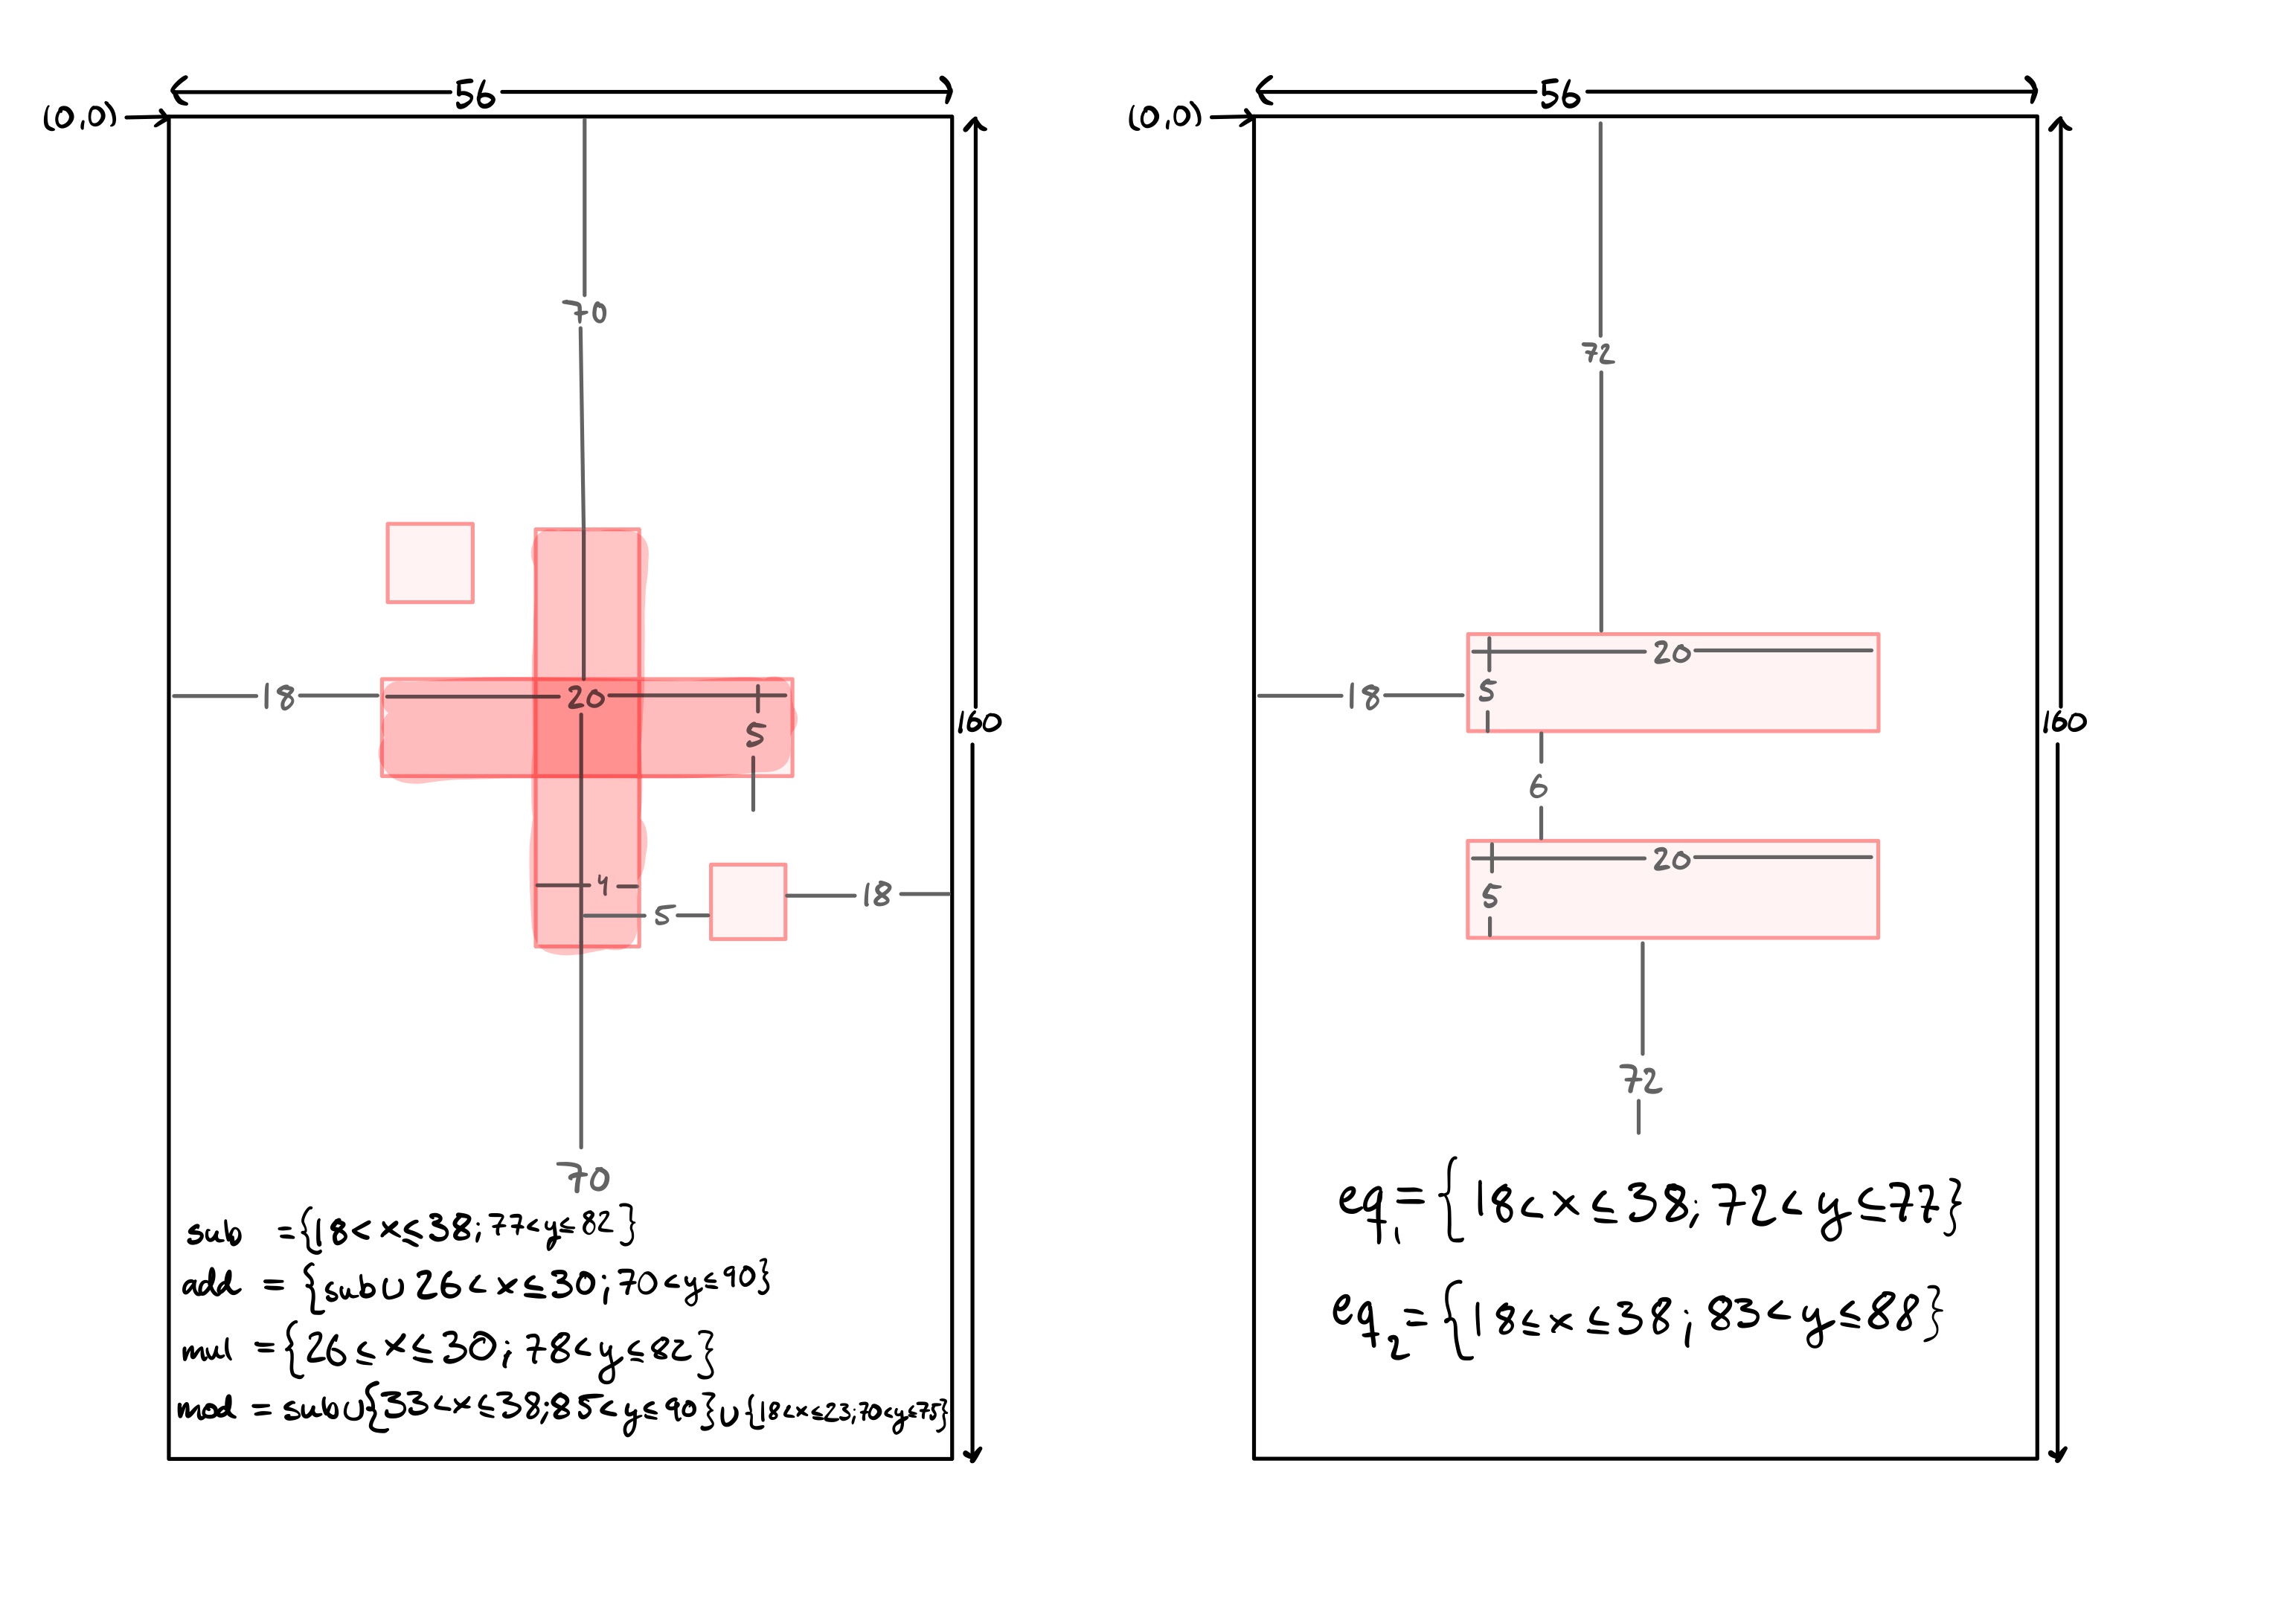 56
(0,0)
70
18
20
5
160
4
5
18
70
sub = {18 < x ≤ 38; 77 < y ≤ 82}
add = {sub ∪ 26 < x ≤ 30; 70 < y ≤ 90}
mul = {26 ≤ x ≤ 30; 78 < y ≤ 82}
mod = sub ∪ {33 < x ≤ 38; 85 < y ≤ 90} ∪ {18 < x ≤ 23; 70 < y ≤ 75}
56
(0,0)
72
20
18
5
160
6
20
5
72
eq₁ = {18 < x ≤ 38; 72 < y ≤ 77}
eq₂ = {18 ≤ x ≤ 38; 83 < y ≤ 88}